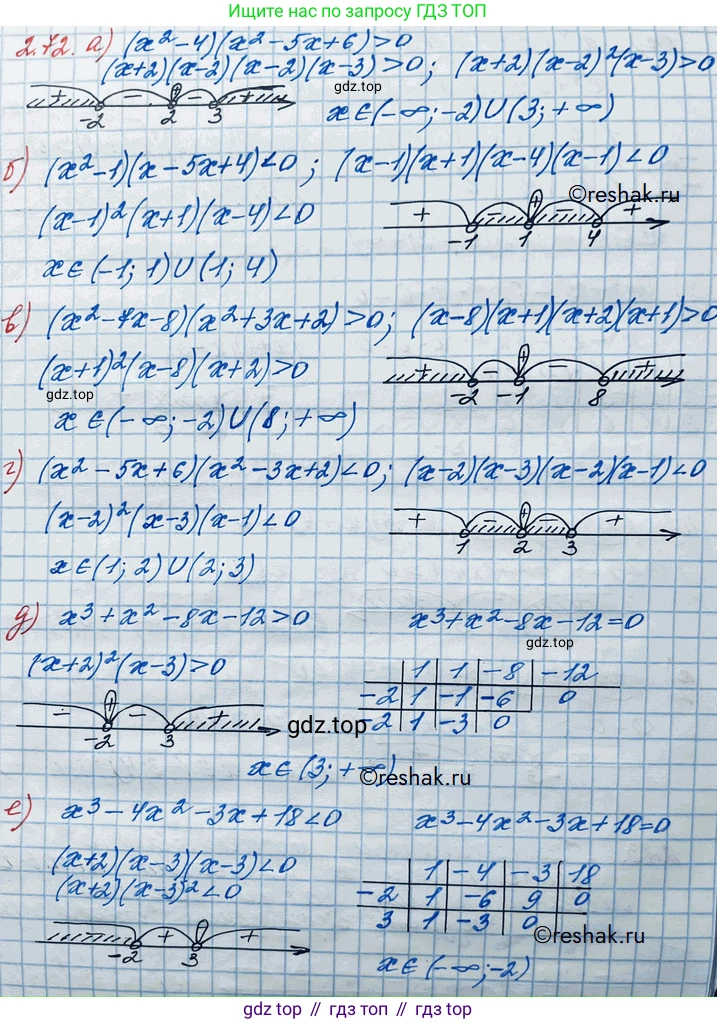 Ищите нас по запросу ГДЗ ТОП
2.72. а) (x² - 4)(x² - 5x + 6) > 0
(x+2)(x-2)(x-2)(x-3) > 0; (x+2)(x-2)²(x-3) > 0
+ - - +
-2 2 3
gdz.top
x ∈ (-∞; -2) ∪ (3; +∞)
б) (x² - 1)(x - 5x + 4) < 0; (x-1)(x+1)(x-4)(x-1) < 0
©reshak.ru
(x-1)²(x+1)(x-4) < 0
+ - + - +
-1 1 4
x ∈ (-1; 1) ∪ (1; 4)
в) (x² - 7x - 8)(x² + 3x + 2) > 0; (x-8)(x+1)(x+2)(x+1) > 0
(x+1)²(x-8)(x+2) > 0
+ - + - +
-2 -1 8
gdz.top
x ∈ (-∞; -2) ∪ (8; +∞)
г) (x² - 5x + 6)(x² - 3x + 2) < 0; (x-2)(x-3)(x-2)(x-1) < 0
(x-2)²(x-3)(x-1) < 0
+ - + - +
1 2 3
x ∈ (1; 2) ∪ (2; 3)
д) x³ + x² - 8x - 12 > 0 x³ + x² - 8x - 12 = 0
gdz.top
(x+2)²(x-3) > 0
1 1 -8 -12
-2 1 -1 -6 0
-2 1 -3 0
- + - +
-2 3
gdz.top
x ∈ (3; +∞)
©reshak.ru
е) x³ - 4x² - 3x + 18 < 0 x³ - 4x² - 3x + 18 = 0
(x+2)(x-3)(x-3) < 0
(x+2)(x-3)² < 0
1 -4 -3 18
-2 1 -6 9 0
3 1 -3 0
- + +
-2 3
©reshak.ru
x ∈ (-∞; -2)
gdz.top // гдз топ // gdz top